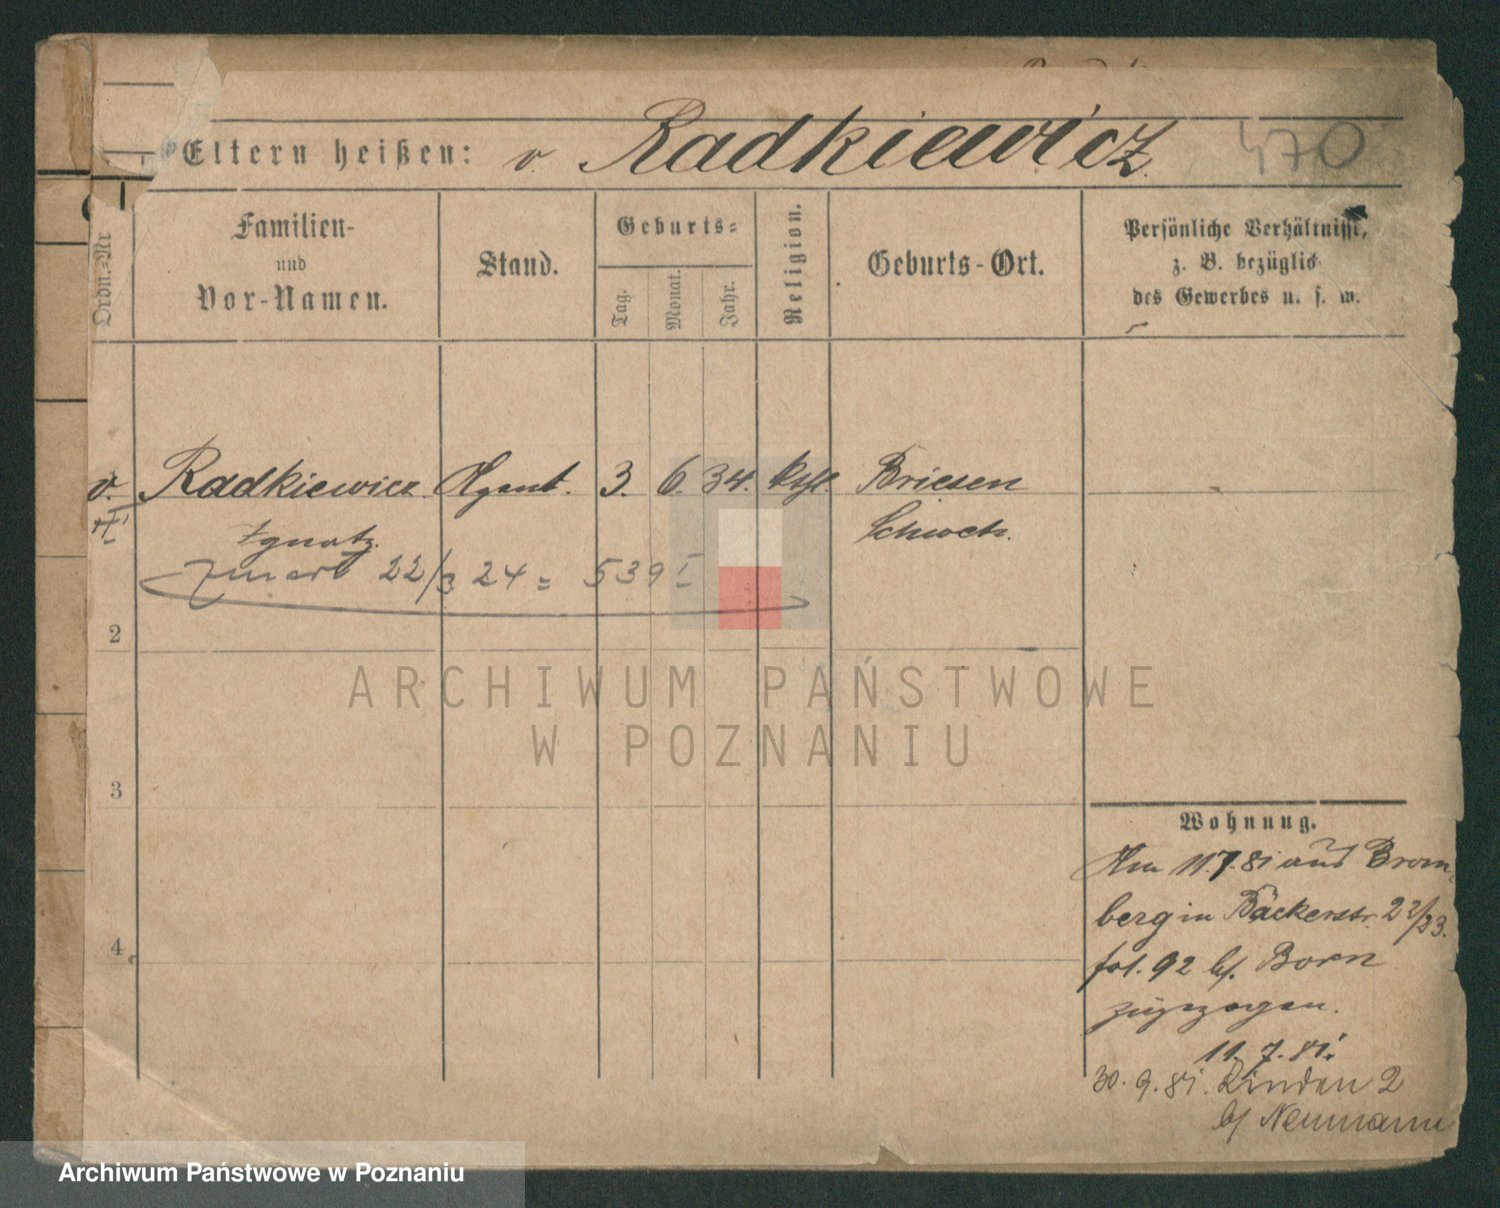 Eltern heißen: v. Radkiewicz.
470
Ordn.-Nr
Familien-
und
Vor-Namen.
Stand.
Geburts-
Tag.
Monat.
Jahr.
Religion.
Geburts-Ort.
Persönliche Verhältnisse,
z. B. bezüglich
des Gewerbes u. s. w.
v. Radkiewicz. Agent. 3. 6. 34. kath. Briesen
Ignatz. Schwetz.
zmarł 22/3 24 = 539 I
2
3
4
Wohnung.
Am 11.7.81 aus Brom-
berg in Bäckerstr. 22/23.
fol. 92 b/. Born
zugezogen.
11. 7. 81.
30. 9. 81. Linden 2
b/ Neumann
ARCHIWUM PAŃSTWOWE
W POZNANIU
Archiwum Państwowe w Poznaniu